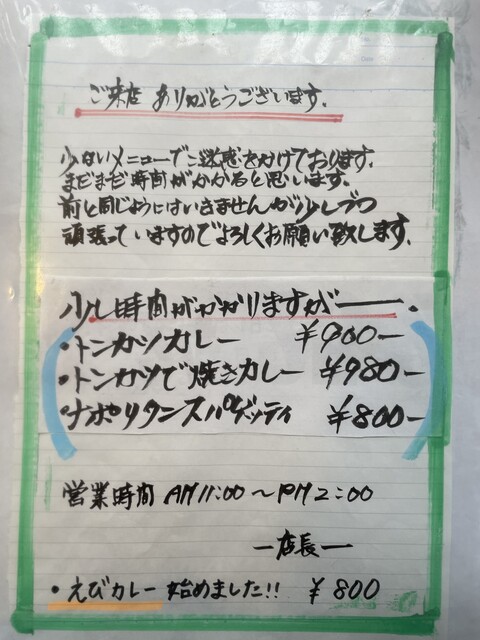 ご来店 ありがとうございます.
少ないメニューでご迷惑をかけております.
まだまだ時間がかかると思います.
前と同じようにはいきませんが少しづつ
頑張っていますのでよろしくお願い致します.
少し時間がかかりますが――.
・トンカツカレー ¥900-
・トンカツで焼きカレー ¥980-
・ナポリタンスパゲッティ ¥800-
営業時間 AM11:00～PM2:00
―店長―
・えびカレー始めました!! ¥800